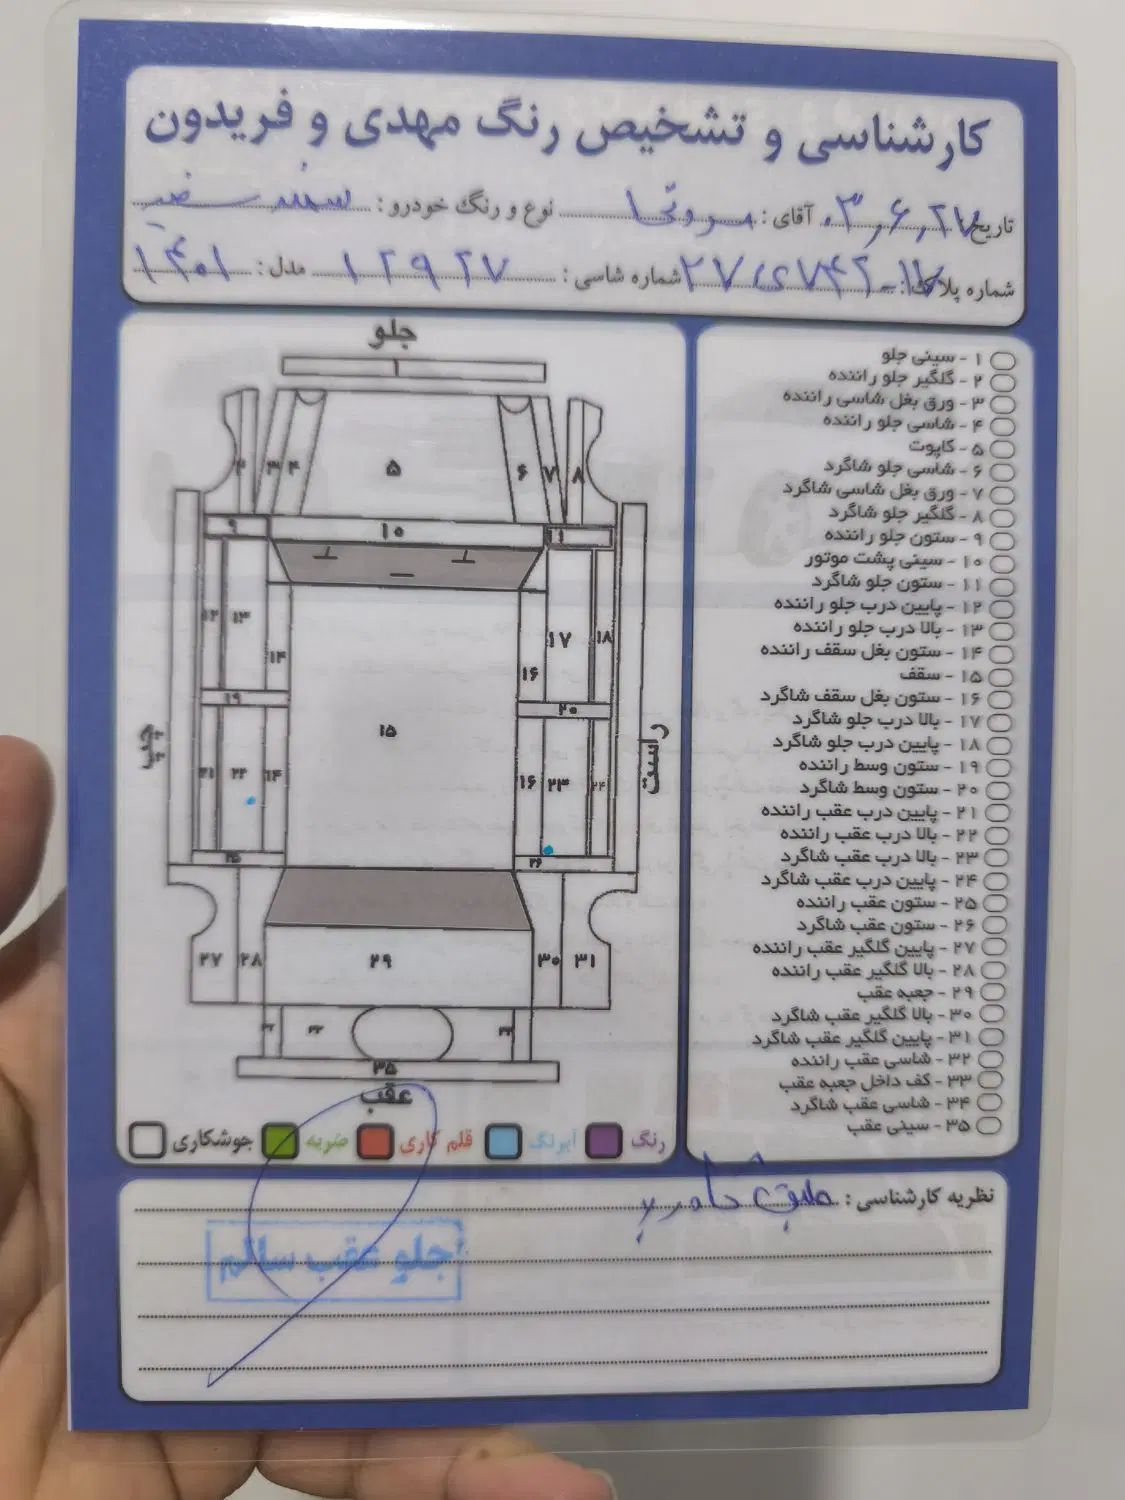 کارشناسی و تشخیص رنگ مهدی و فریدون
تاریخ: ۰۳,۶,۲۷ آقای: نوع و رنگ خودرو: سمند سفید
شماره پلاک: شماره شاسی: ۱۲۹۲۷ مدل: ۱۴۰۱
جلو
۱
۲ ۳ ۴ ۵ ۶ ۷ ۸
۹ ۱۰ ۱۱
۱۲ ۱۳ ۱۴ ۱۶ ۱۷ ۱۸
۱۹ ۲۰
چپ ۱۵ راست
۲۱ ۲۲ ۱۴ ۱۶ ۲۳ ۲۴
۲۵ ۲۶
۲۷ ۲۸ ۲۹ ۳۰ ۳۱
۳۵
عقب
رنگ آبرنگ قلم کاری ضربه جوشکاری
۱ - سینی جلو
۲ - گلگیر جلو راننده
۳ - ورق بغل شاسی راننده
۴ - شاسی جلو راننده
۵ - کاپوت
۶ - شاسی جلو شاگرد
۷ - ورق بغل شاسی شاگرد
۸ - گلگیر جلو شاگرد
۹ - ستون جلو راننده
۱۰ - سینی پشت موتور
۱۱ - ستون جلو شاگرد
۱۲ - پایین درب جلو راننده
۱۳ - بالا درب جلو راننده
۱۴ - ستون بغل سقف راننده
۱۵ - سقف
۱۶ - ستون بغل سقف شاگرد
۱۷ - بالا درب جلو شاگرد
۱۸ - پایین درب جلو شاگرد
۱۹ - ستون وسط راننده
۲۰ - ستون وسط شاگرد
۲۱ - پایین درب عقب راننده
۲۲ - بالا درب عقب راننده
۲۳ - بالا درب عقب شاگرد
۲۴ - پایین درب عقب شاگرد
۲۵ - ستون عقب راننده
۲۶ - ستون عقب شاگرد
۲۷ - پایین گلگیر عقب راننده
۲۸ - بالا گلگیر عقب راننده
۲۹ - جعبه عقب
۳۰ - بالا گلگیر عقب شاگرد
۳۱ - پایین گلگیر عقب شاگرد
۳۲ - شاسی عقب راننده
۳۳ - کف داخل جعبه عقب
۳۴ - شاسی عقب شاگرد
۳۵ - سینی عقب
نظریه کارشناسی: طبق
جلو عقب سالم